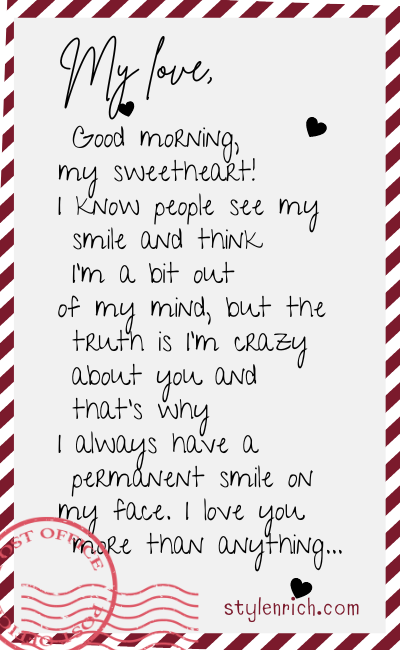 My love,
Good morning,
my sweetheart!
I know people see my
smile and think
I'm a bit out
of my mind, but the
truth is I'm crazy
about you and
that's why
I always have a
permanent smile on
my face. I love you
more than anything...
POST OFFICE
stylenrich.com